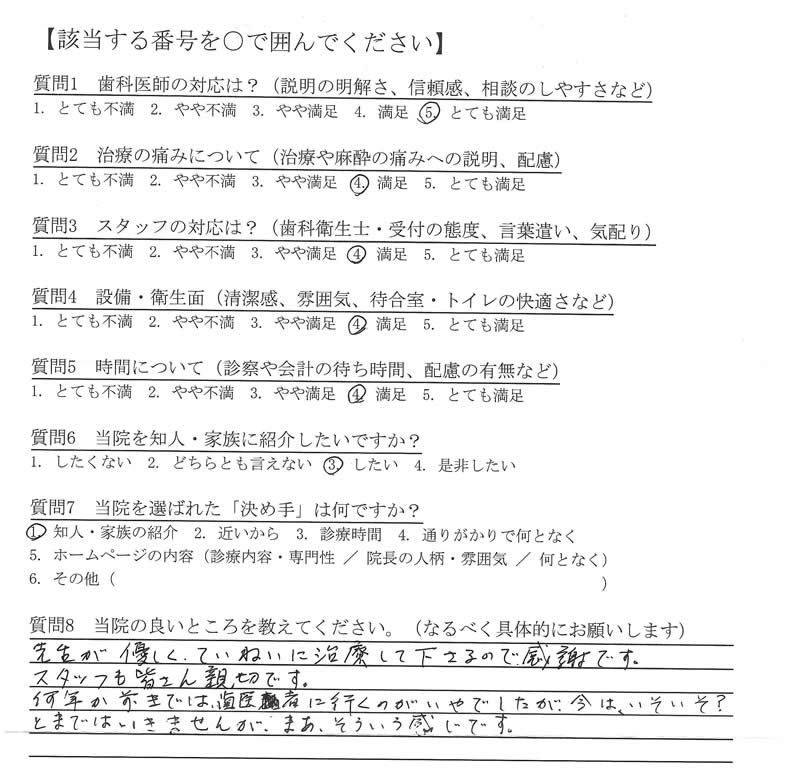 【該当する番号を○で囲んでください】
質問1 歯科医師の対応は？（説明の明解さ、信頼感、相談のしやすさなど）
1. とても不満 2. やや不満 3. やや満足 4. 満足 5. とても満足
質問2 治療の痛みについて（治療や麻酔の痛みへの説明、配慮）
1. とても不満 2. やや不満 3. やや満足 4. 満足 5. とても満足
質問3 スタッフの対応は？（歯科衛生士・受付の態度、言葉遣い、気配り）
1. とても不満 2. やや不満 3. やや満足 4. 満足 5. とても満足
質問4 設備・衛生面（清潔感、雰囲気、待合室・トイレの快適さなど）
1. とても不満 2. やや不満 3. やや満足 4. 満足 5. とても満足
質問5 時間について（診察や会計の待ち時間、配慮の有無など）
1. とても不満 2. やや不満 3. やや満足 4. 満足 5. とても満足
質問6 当院を知人・家族に紹介したいですか？
1. したくない 2. どちらとも言えない 3. したい 4. 是非したい
質問7 当院を選ばれた「決め手」は何ですか？
1. 知人・家族の紹介 2. 近いから 3. 診療時間 4. 通りがかりで何となく
5. ホームページの内容（診療内容・専門性 ／ 院長の人柄・雰囲気 ／ 何となく）
6. その他（ ）
質問8 当院の良いところを教えてください。（なるべく具体的にお願いします）
先生が優しく、ていねいに治療して下さるので感謝です。
スタッフも皆さん親切です。
何年か前までは、歯医者に行くのがいやでしたが、今は、いそいそ？
とまではいきませんが、まあ、そういう感じです。